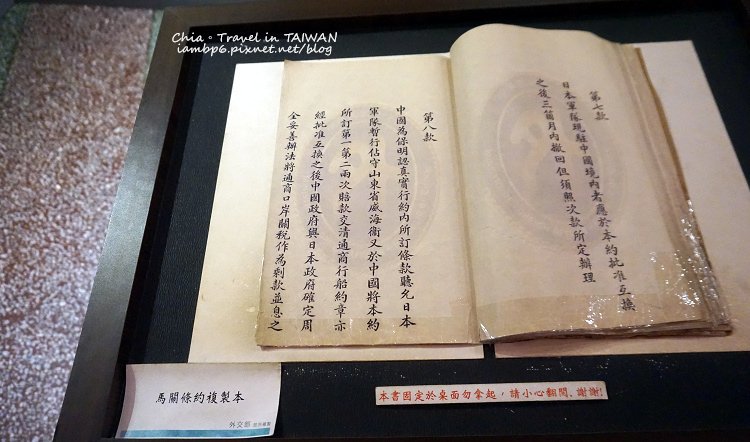 Chia。Travel in TAIWAN
iambp6.pixnet.net/blog
第七款
日本軍隊現駐中國境內者應於本約批准互換
之後三箇月內撤回但須照次款所定辦理
第八款
中國為保明認真實行約內所訂條款聽允日本
軍隊暫行佔守山東省威海衛又於中國將本約
所訂第一第二兩次賠款交清通商行船約章亦
經批准互換之後中國政府與日本政府確定周
全妥善辦法將通商口岸關稅作為剩款並息之
馬關條約複製本
外交部
本書固定於桌面勿拿起，請小心翻閱、謝謝!